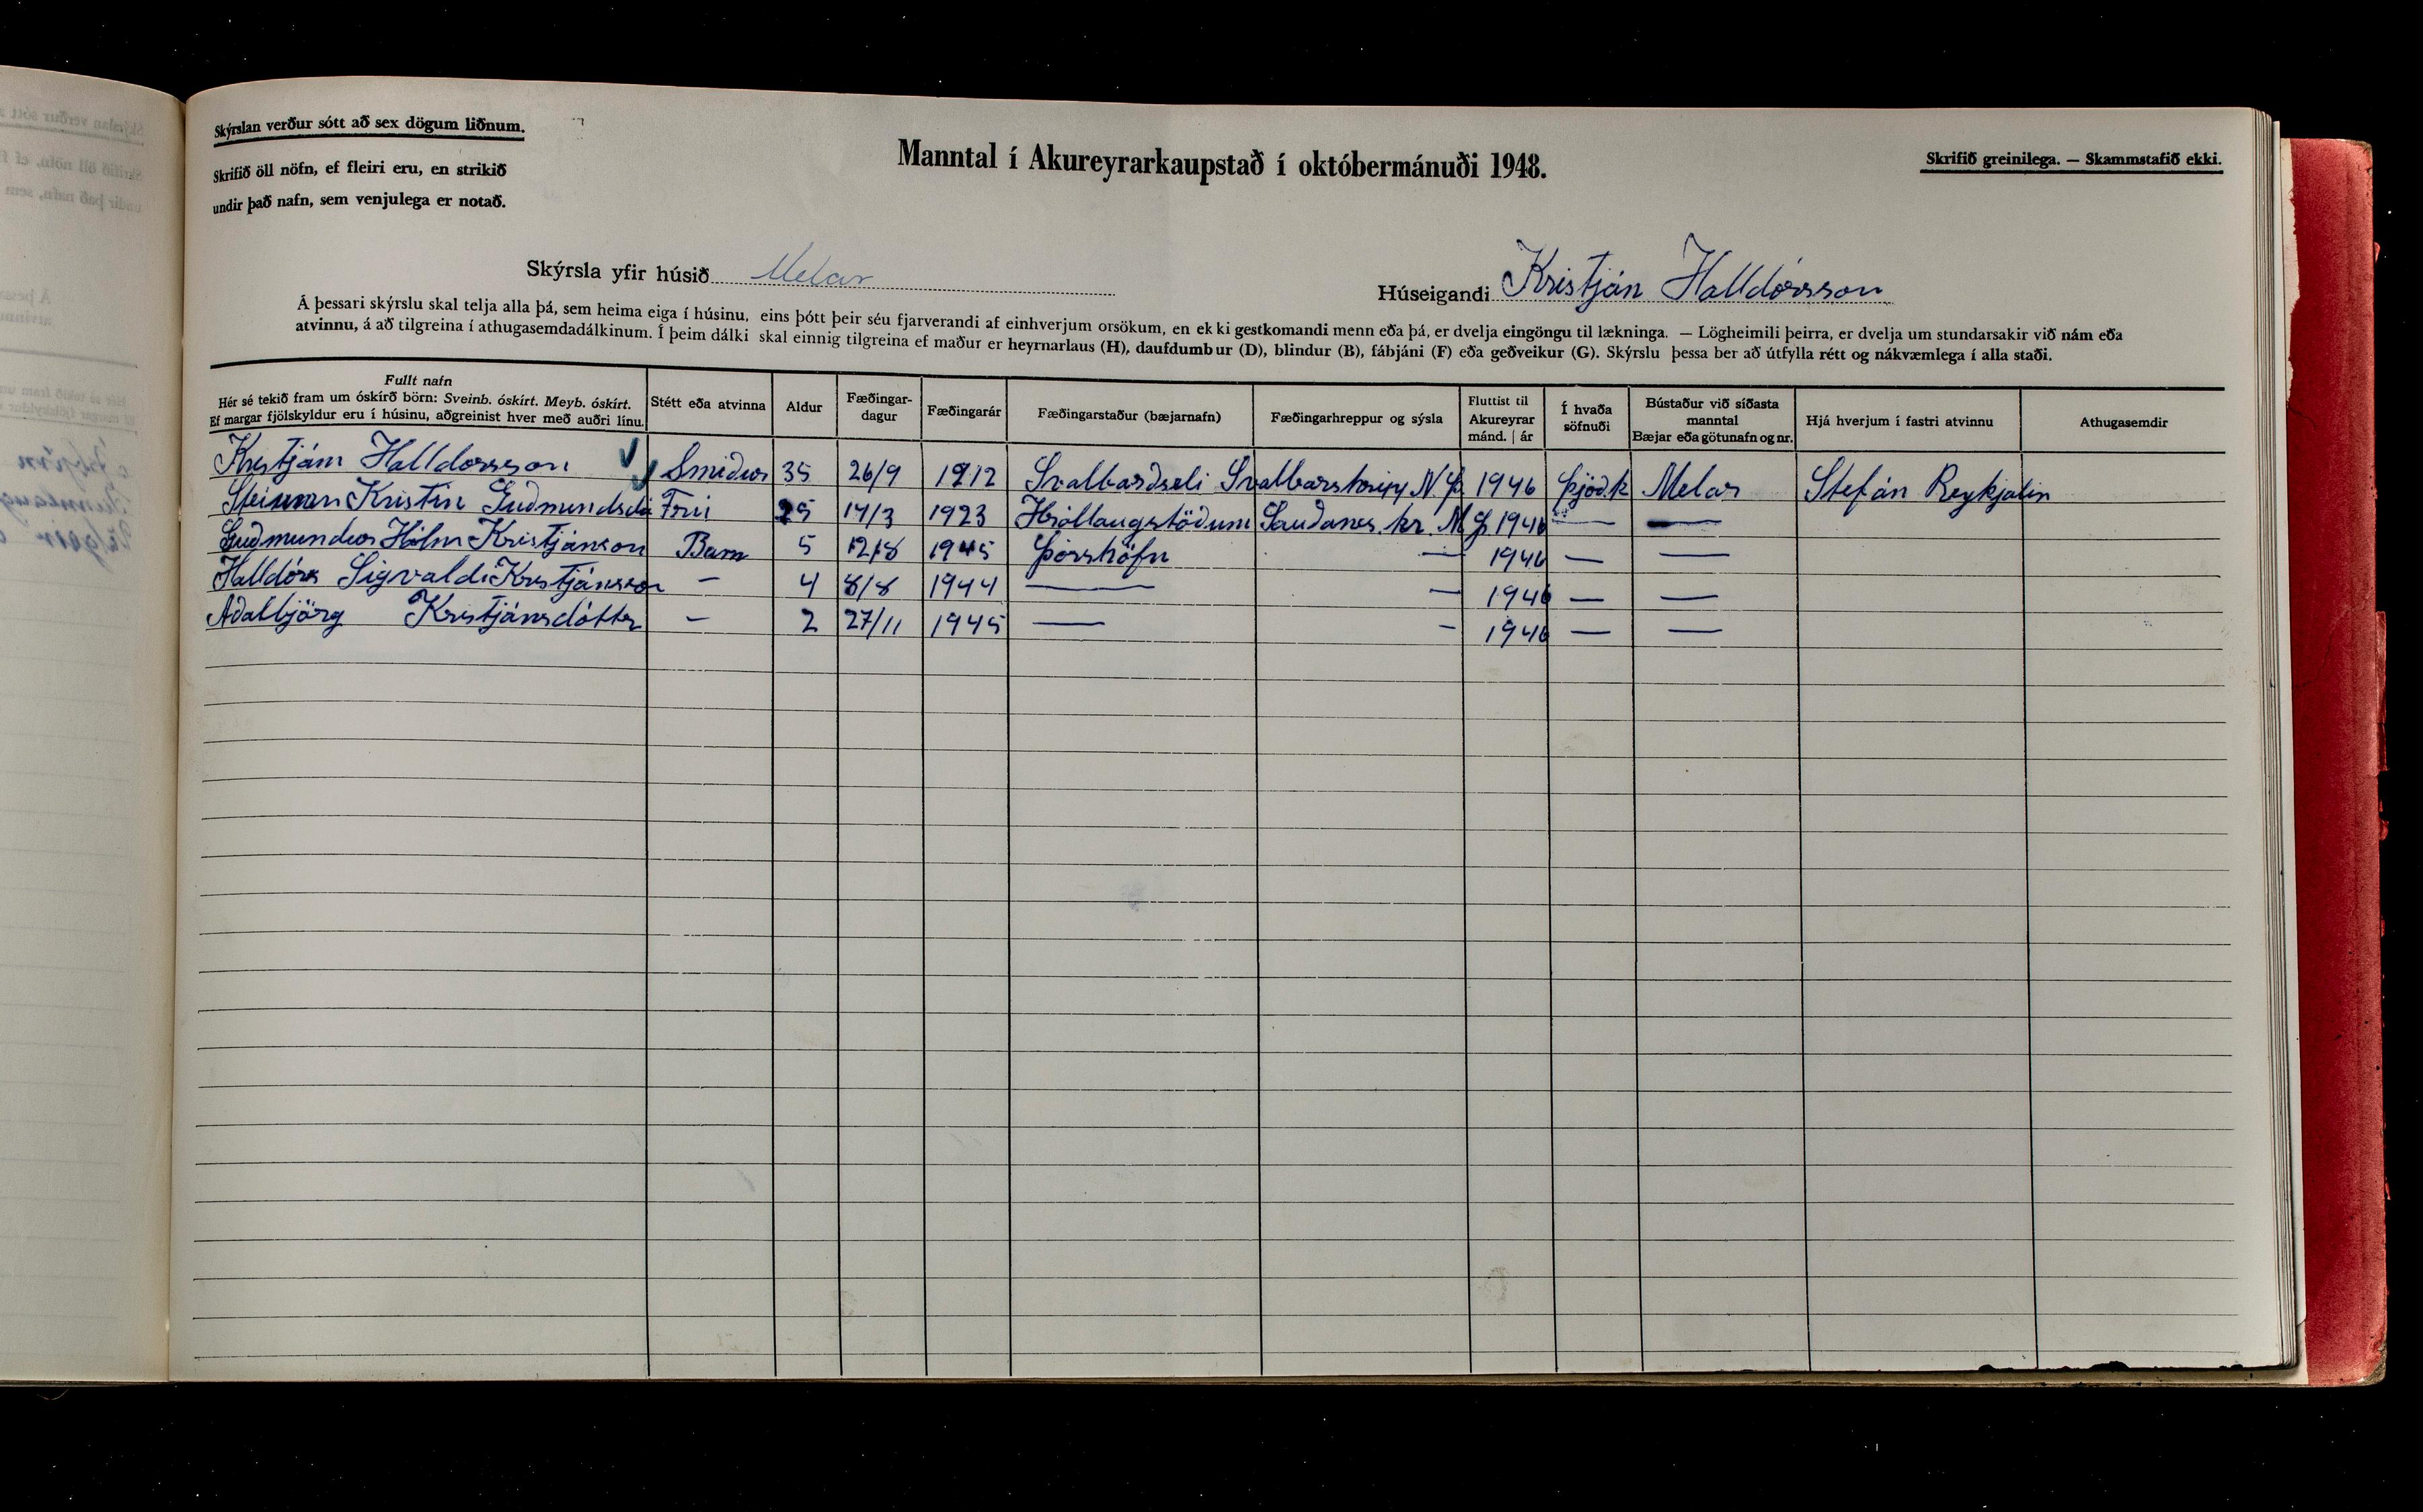 Skýrslan verður sótt að sex dögum liðnum.
Skrifið öll nöfn, ef fleiri eru, en strikið
undir það nafn, sem venjulega er notað.
Manntal í Akureyrarkaupstað í októbermánuði 1948.
Skrifið greinilega. — Skammstafið ekki.
Skýrsla yfir húsið Melar
Húseigandi Kristján Halldórsson
Á þessari skýrslu skal telja alla þá, sem heima eiga í húsinu, eins þótt þeir séu fjarverandi af einhverjum orsökum, en ekki gestkomandi menn eða þá, er dvelja eingöngu til lækninga. — Lögheimili þeirra, er dvelja um stundarsakir við nám eða
atvinnu, á að tilgreina í athugasemdadálkinum. Í þeim dálki skal einnig tilgreina ef maður er heyrnarlaus (H), daufdumbur (D), blindur (B), fábjáni (F) eða geðveikur (G). Skýrslu þessa ber að útfylla rétt og nákvæmlega í alla staði.
Fullt nafn
Hér sé tekið fram um óskírð börn: Sveinb. óskírt. Meyb. óskírt.
Ef margar fjölskyldur eru í húsinu, aðgreinist hver með auðri línu.
Stétt eða atvinna
Aldur
Fæðingar-
dagur
Fæðingarár
Fæðingarstaður (bæjarnafn)
Fæðingarhreppur og sýsla
Fluttist til
Akureyrar
mánd. | ár
Í hvaða
söfnuði
Bústaður við síðasta
manntal
Bæjar eða götunafn og nr.
Hjá hverjum í fastri atvinnu
Athugasemdir
Kristján Halldorsson Smiður 35 26/9 1912 Svalbarðseli Svalbarshrepp N.Þ. 1946 Þjóðk Melar Stefán Reykjalin
Kristín Guðmundsdó Frú 25 14/3 1923 Hrollaugstöðum Sauðanes.hr. N.Þ. 1946 — —
Guðmundur Hólm Kristjánson Barn 5 12/8 1945 Þórshöfn — 1946 — —
Halldór Sigvaldi Kristjánsson — 4 8/8 1944 — — 1946 — —
Aðalbjörg Kristjánsdóttir — 2 27/11 1945 — — 1946 — —